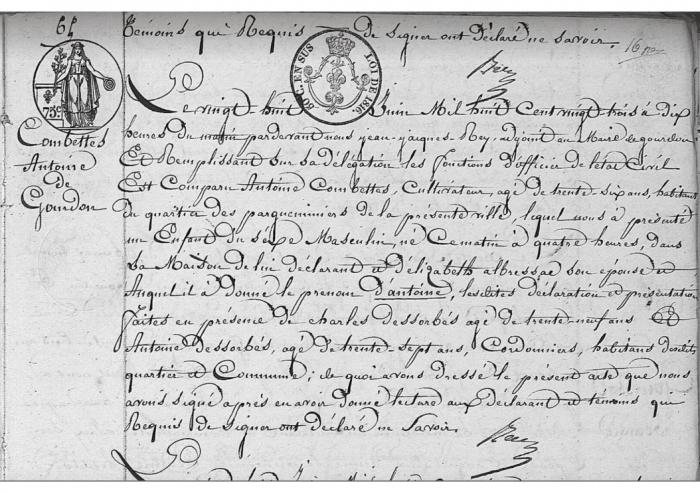 Témoins qui Requis de signer ont déclaré ne savoir.
16
64
75c.
80 C. EN SUS LOI DE 1816.
Rey
Combettes
Antoine
de
Gourdon
Le vingt huit Juin Mil huit Cent vingt trois à dix
heures du matin pardevant nous jean-jacques Rey, adjoint en Maire de gourdon
Et Remplissant sur sa délégation les fonctions d'officier de letat Civil
Est Comparu Antoine Combettes, Cultivateur, agé de trente six ans, habitant
du quartier des pargueminiers de la présente ville, lequel nous à présenté
un Enfant du sexe Masculin, né Ce matin à quatre heures, dans
sa Maison de lui déclarant et d'élizabeth albressac son épouse et
Auquel il à donné le prenom d'antoine, lesdites déclaration et présentation
faites en présence de charles dessorbés agé de trente-neuf ans Et
Antoine dessorbés, agé de trente-sept ans, Cordonniers, habitans desdits
quartier et Commune; de quoi avons dressé le présent acte que nous
avons signé après en avoir donné lecture aux déclarant et témoins qui
Requis de signer ont déclaré ne Savoir.
Rey